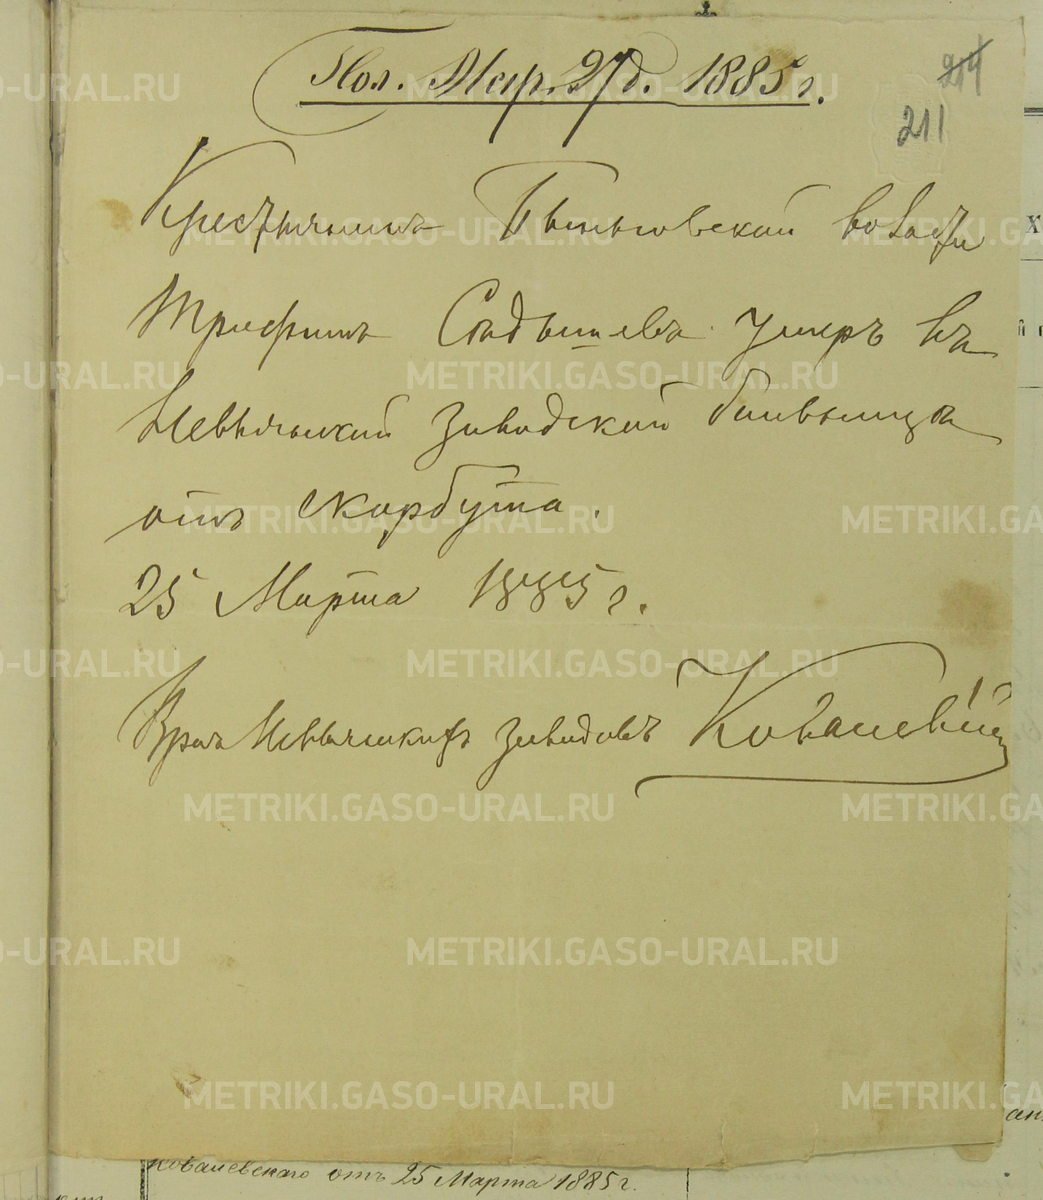 Пол. Мар. 27 д. 1885 г.
214
211
Крестьянинъ Быньговской волости
Трифонъ умеръ въ
Невьянской заводской больницѣ
отъ скорбута.
25 Марта 1885 г.
Врачъ Невьянскихъ заводовъ Ковалевскій
Ковалевскаго отъ 25 Марта 1885 г.
METRIKI.GASO-URAL.RU